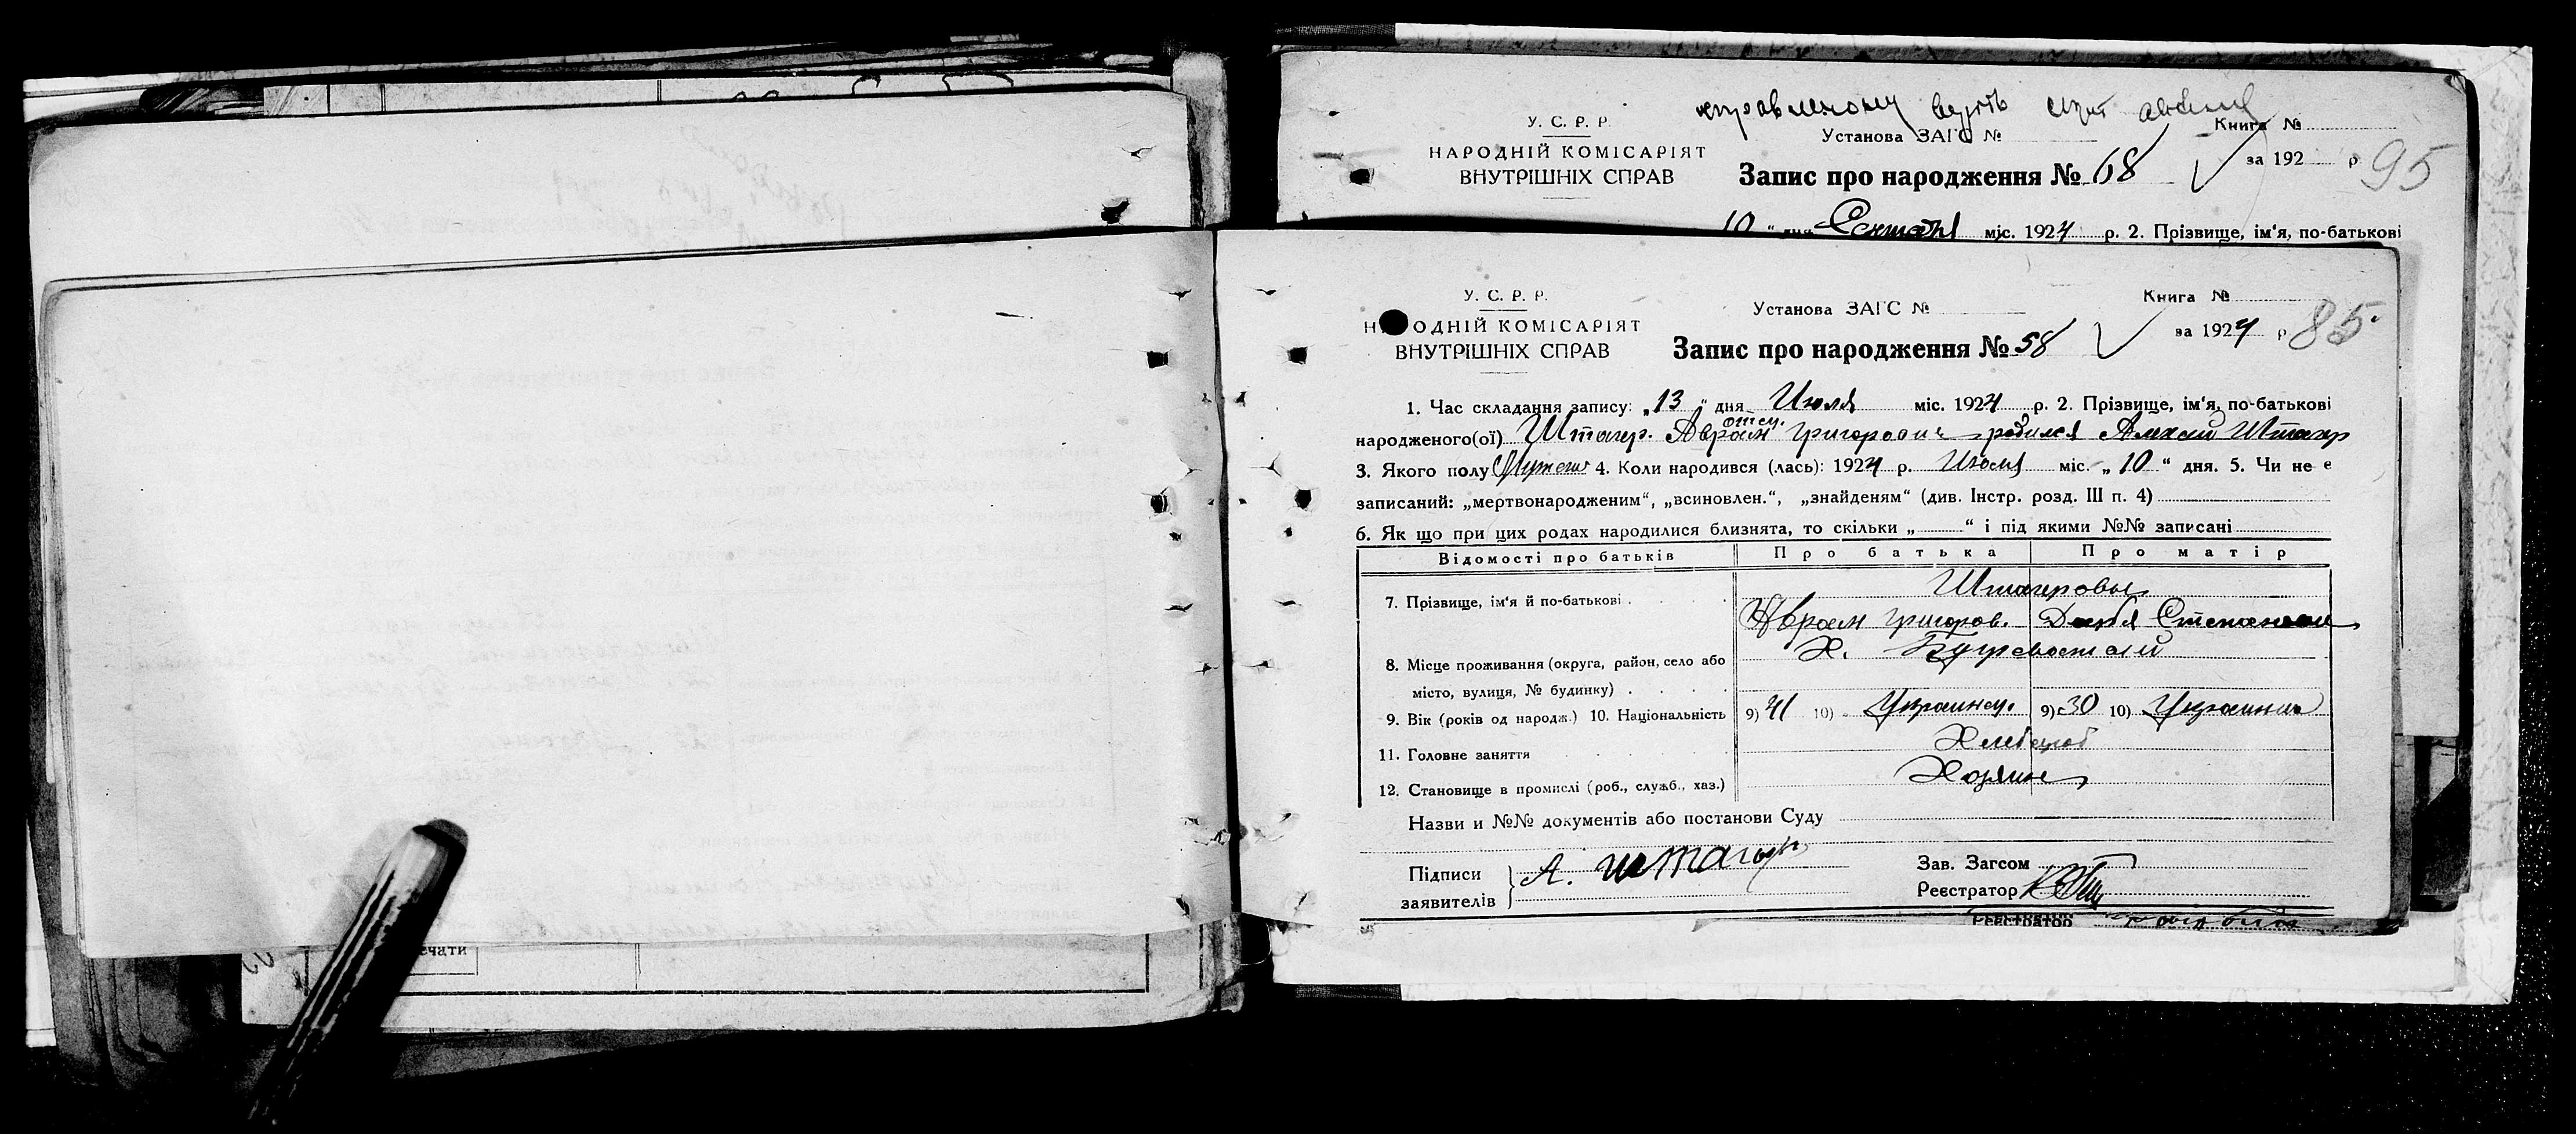 У. С. Р. Р.
НАРОДНІЙ КОМІСАРІЯТ
ВНУТРІШНІХ СПРАВ
Установа ЗАГС №
Книга №
за 192 р
95
Запис про народження № 68
10 " дня міс. 1924 р. 2. Прізвище, ім'я, по-батькові
У. С. Р. Р.
Н ОДНІЙ КОМІСАРІЯТ
ВНУТРІШНІХ СПРАВ
Установа ЗАГС №
Книга №
за 1924 р
85
Запис про народження № 58
1. Час складання запису: „13" дня Июля міс. 1924 р. 2. Прізвище, ім'я, по-батькові
отец.
народженого(ої) Штагер. Авраам Григорович родился Алексей Штагер
3. Якого полу Мужеск 4. Коли народився (лась): 1924 р. Июля міс. „10" дня. 5. Чи не є
записаний: „мертвонародженим", „всиновлен.", „знайденям" (див. Інстр. розд. III п. 4)
6. Як що при цих родах народилися близнята, то скільки „ " і під якими №№ записані
Відомості про батьків Про батька Про матір
7. Прізвище, ім'я й по-батькові Штагеровы
Авраам Григоров. Степанов
8. Місце проживання (округа, район, село або Х.
місто, вулиця, № будинку)
9. Вік (років од народж.) 10. Національність 9) 41 10) Украинец. 9) 30 10) Украинка
11. Головне заняття Хлебороб
12. Становище в промислі (роб., служб., хаз.) Хозяин
Назви и №№ документів або постанови Суду
Підписи
заявителів
А. Штагер
Зав. Загсом
Реєстратор
Реєстратор
ечати